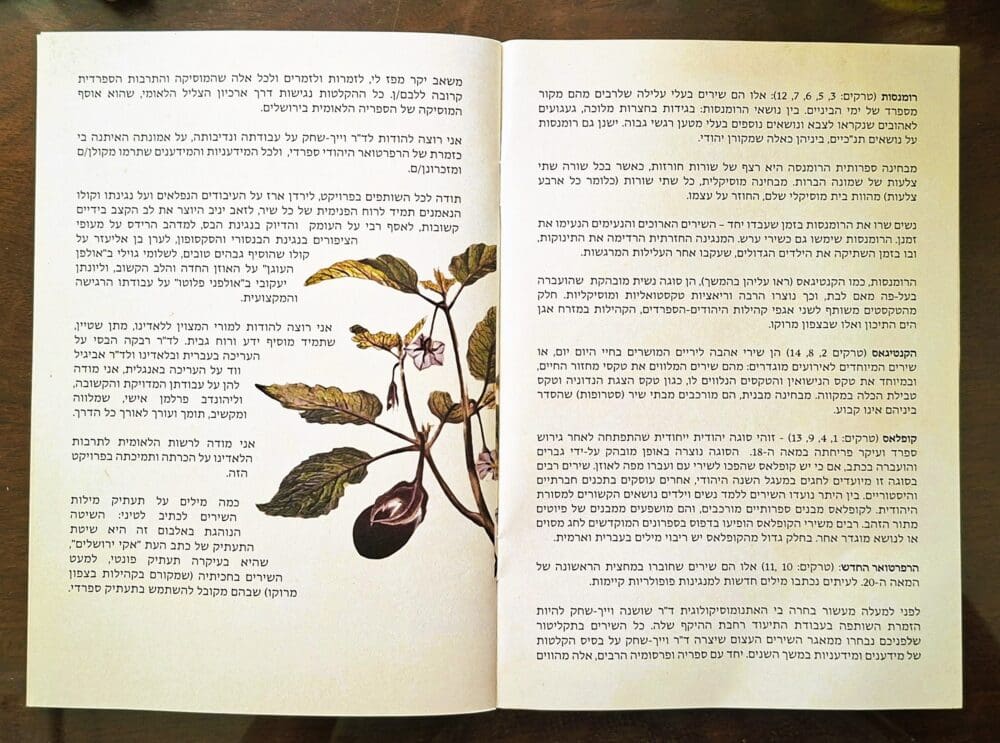 רומנסות (טרקים: 3, 5, 6, 7, 12): אלו הם שירים בעלי עלילה שלרבים מהם מקור
מספרד של ימי הביניים. בין נושאי הרומנסות: בגידות בחצרות מלוכה, געגועים
לאהובים שנקראו לצבא ונושאים נוספים בעלי מטען רגשי גבוה. ישנן גם רומנסות
על נושאים תנ"כיים, ביניהן כאלה שמקורן יהודי.
מבחינה ספרותית הרומנסה היא רצף של שורות חורזות, כאשר בכל שורה שתי
צלעות של שמונה הברות. מבחינה מוסיקלית, כל שתי שורות (כלומר כל ארבע
צלעות) מהוות בית מוסיקלי שלם, החוזר על עצמו.
נשים שרו את הרומנסות בזמן שעבדו יחד – השירים הארוכים והנעימים הנעימו את
זמנן. הרומנסות שימשו גם כשירי ערש. המנגינה החוזרתית הרדימה את התינוקות,
ובו בזמן השתיקה את הילדים הגדולים, שעקבו אחר העלילות המרגשות.
הרומנסות, כמו הקנטיגאס (ראו עליהן בהמשך), הן סוגה נשית מובהקת שהועברה
בעל-פה מאם לבת, וכך נוצרו הרבה וריאציות טקסטואליות ומוסיקליות. חלק
מהטקסטים משותף לשני אגפי קהילות היהודים-הספרדים, הקהילות במזרח אגן
הים התיכון ואלו שבצפון מרוקו.
הקנטיגאס (טרקים 2, 8, 14) הן שירי אהבה ליריים המושרים בחיי היום יום, או
שירים המיוחדים לאירועים מוגדרים: מהם שירים המלווים את טקסי מחזור החיים,
ובמיוחד את טקס הנישואין והטקסים הנלווים לו, כגון טקס הצגת הנדוניה וטקס
טבילת הכלה במקווה. מבחינה מבנית, הם מורכבים מבתי שיר (סטרופות) שהסדר
ביניהם אינו קבוע.
קופלאס (טרקים: 1, 4, 9, 13) - זוהי סוגה יהודית ייחודית שהתפתחה לאחר גירוש
ספרד ועיקר פריחתה במאה ה-18. הסוגה נוצרה באופן מובהק על-ידי גברים
והועברה בכתב, אם כי יש קופלאס שהפכו לשירי עם ועברו מפה לאוזן. שירים רבים
בסוגה זו מיועדים לחגים במעגל השנה היהודי, אחרים עוסקים בתכנים חברתיים
והיסטוריים. בין היתר נועדו השירים ללמד נשים וילדים נושאים הקשורים למסורת
היהודית. לקופלאס מבנים ספרותיים מורכבים, והם מושפעים ממבנים של פיוטים
מתור הזהב. רבים משירי הקופלאס הופיעו בדפוס בספרונים המוקדשים לחג מסוים
או לנושא מוגדר אחר. בחלק גדול מהקופלאס יש ריבוי מילים בעברית וארמית.
הרפרטואר החדש: (טרקים: 10, 11) אלו הם שירים שחוברו במחצית הראשונה של
המאה ה-20. לעיתים נכתבו מילים חדשות למנגינות פופולריות קיימות.
לפני למעלה מעשור בחרה בי האתנומוסיקולוגית ד"ר שושנה וייך-שחק להיות
הזמרת השותפה בעבודת התיעוד רחבת ההיקף שלה. כל השירים בתקליטור
שלפניכם נבחרו ממאגר השירים העצום שיצרה ד"ר וייך-שחק על בסיס הקלטות
של מידענים ומידעניות במשך השנים. יחד עם ספריה ופרסומיה הרבים, אלה מהווים
משאב יקר מפז לי, לזמרות ולזמרים ולכל אלה שהמוסיקה והתרבות הספרדית
קרובה ללבם/ן. כל ההקלטות נגישות דרך ארכיון הצליל הלאומי, שהוא אוסף
המוסיקה של הספריה הלאומית בירושלים.
אני רוצה להודות לד"ר וייך-שחק על עבודתה ונדיבותה, על אמונתה האיתנה בי
כזמרת של הרפרטואר היהודי ספרדי, ולכל המידעניות והמידענים שתרמו מקולן/ם
ומזכרונן/ם.
תודה לכל השותפים בפרויקט, לירדן ארז על העיבודים הנפלאים ועל נגינתו וקולו
הנאמנים תמיד לרוח הפנימית של כל שיר, לזאב יניב היוצר את לב הקצב בידיים
קשובות, לאסף רבי על העומק והדיוק בנגינת הבס, למדהב הרידס על מעופי
הציפורים בנגינת הבנסורי והסקסופון, לערן בן אליעזר על
קולו שהוסיף גבהים טובים, לשלומי גוילי ב"אולפן
העוגן" על האוזן החדה והלב הקשוב, וליונתן
יעקובי ב"אולפני פלוטו" על עבודתו הרגישה
והמקצועית.
אני רוצה להודות למורי המצוין ללאדינו, מתן שטיין,
שתמיד מוסיף ידע ורוח גבית. לד"ר רבקה הבסי על
העריכה בעברית ובלאדינו ולד"ר אביגיל
ווד על העריכה באנגלית, אני מודה
להן על עבודתן המדויקת והקשובה,
וליהונדב פרלמן אישי, שמלווה
ומקשיב, תומך ועוזר לאורך כל הדרך.
אני מודה לרשות הלאומית לתרבות
הלאדינו על הכרתה ותמיכתה בפרויקט
הזה.
כמה מילים על תעתיק מילות
השירים לכתיב לטיני: השיטה
הנוהגת באלבום זה היא שיטת
התעתיק של כתב העת "אקי ירושלים",
שהיא בעיקרה תעתיק פונטי, למעט
השירים בחכיתיה (שמקורם בקהילות בצפון
מרוקו) שבהם מקובל להשתמש בתעתיק ספרדי.